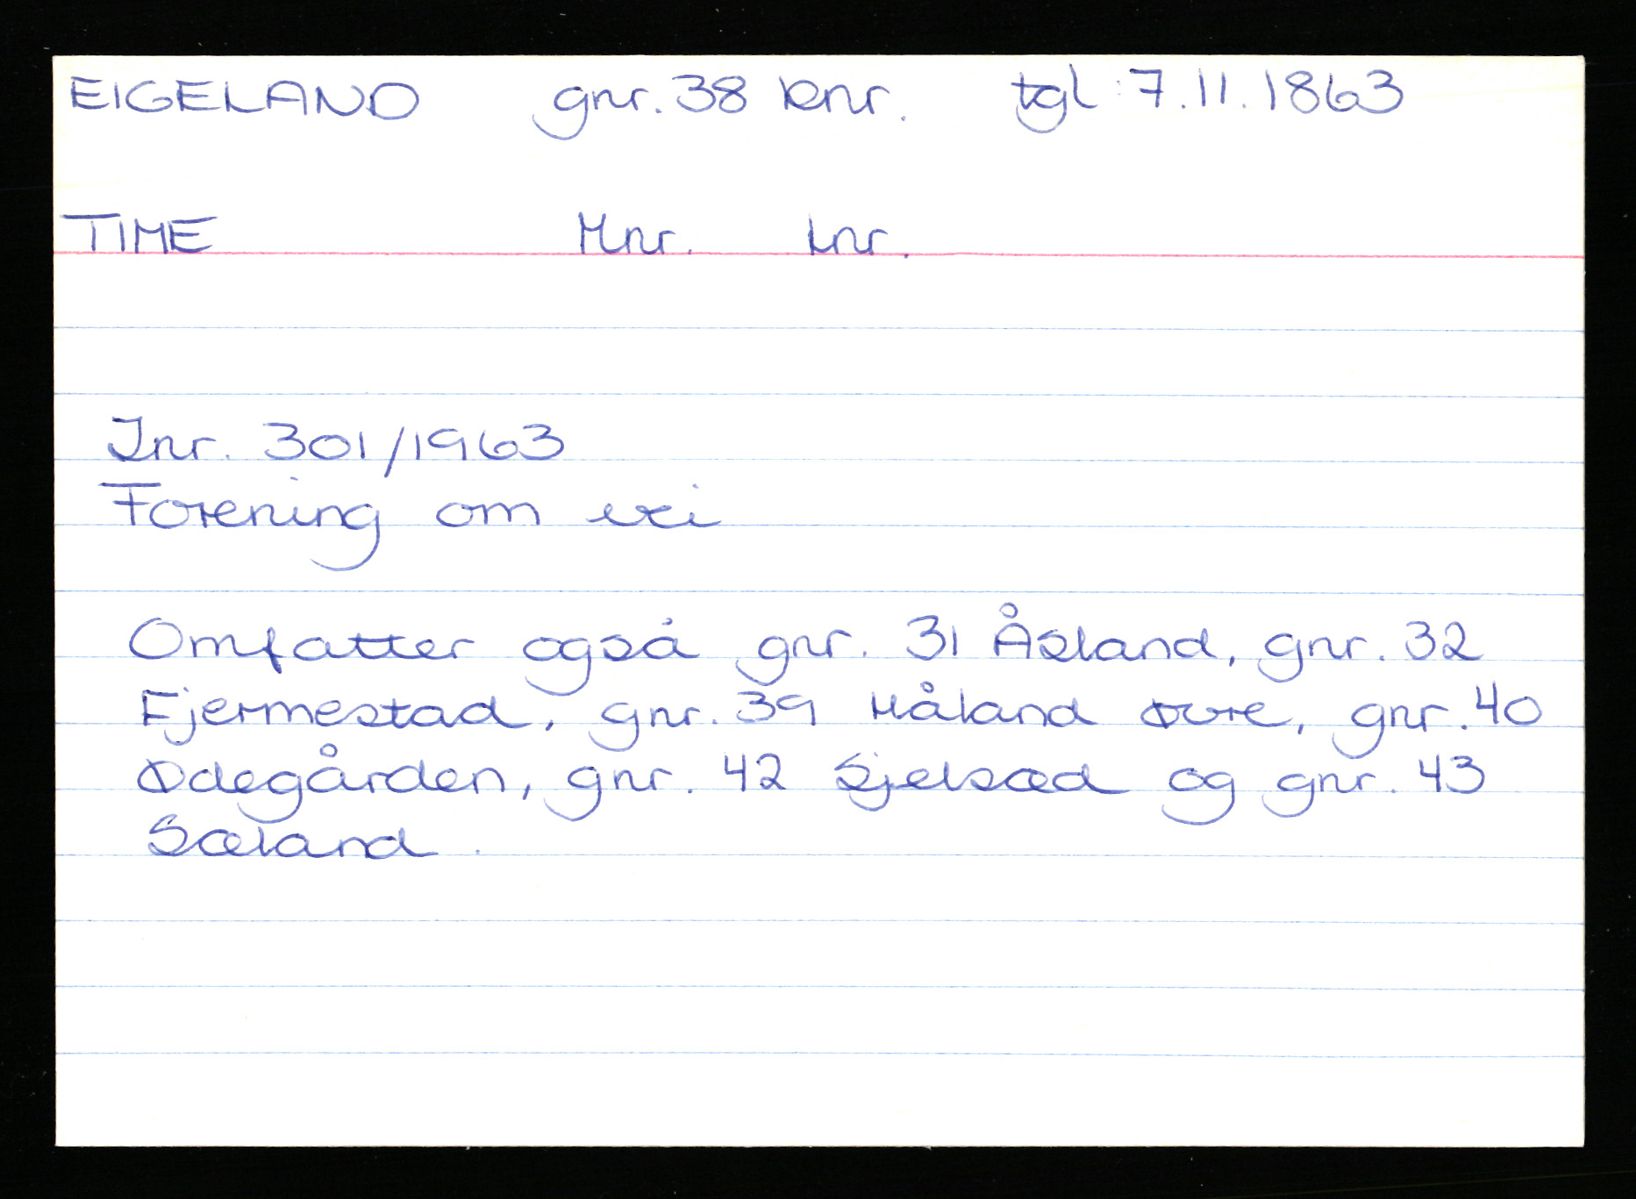 EIGELAND gnr. 38 bnr. tgl: 7.11.1863
TIME Mnr. Lnr.
Jnr. 301/1963
Forening om vei
Omfatter også gnr. 31 Åsland, gnr. 32
Fjermestad, gnr. 39 Håland øvre, gnr. 40
Ødegården, gnr. 42 Sjelsæd og gnr. 43
Sæland.